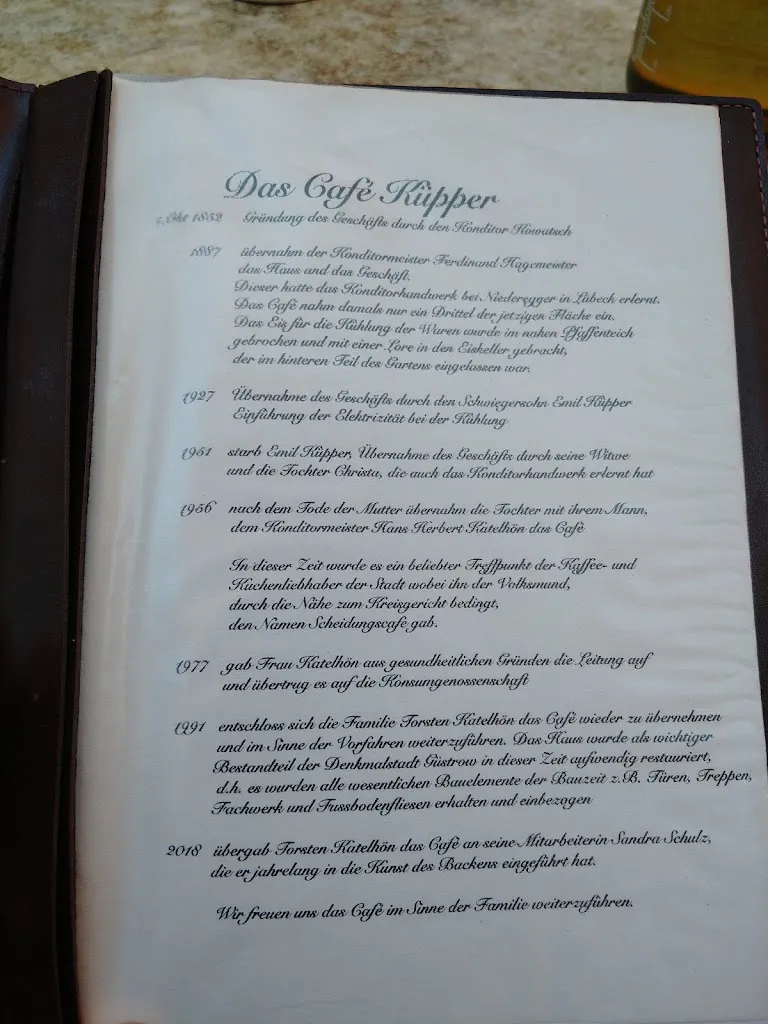 Das Café Küpper
Okt 1852 Gründung des Geschäfts durch den Konditor Kowatsch
1887 übernahm der Konditormeister Ferdinand Hagemeister
das Haus und das Geschäft.
Dieser hatte das Konditorhandwerk bei Niederegger in Lübeck erlernt.
Das Café nahm damals nur ein Drittel der jetzigen Fläche ein.
Das Eis für die Kühlung der Waren wurde im nahen Pfaffenteich
gebrochen und mit einer Lore in den Eiskeller gebracht,
der im hinteren Teil des Gartens eingelassen war.
1927 Übernahme des Geschäfts durch den Schwiegersohn Emil Küpper
Einführung der Elektrizität bei der Kühlung
1951 starb Emil Küpper, Übernahme des Geschäfts durch seine Witwe
und die Tochter Christa, die auch das Konditorhandwerk erlernt hat
1956 nach dem Tode der Mutter übernahm die Tochter mit ihrem Mann,
dem Konditormeister Hans Herbert Katelhön das Café
In dieser Zeit wurde es ein beliebter Treffpunkt der Kaffee- und
Kuchenliebhaber der Stadt wobei ihn der Volksmund,
durch die Nähe zum Kreisgericht bedingt,
den Namen Scheidungscafe gab.
1977 gab Frau Katelhön aus gesundheitlichen Gründen die Leitung auf
und übertrug es auf die Konsumgenossenschaft
1991 entschloss sich die Familie Torsten Katelhön das Café wieder zu übernehmen
und im Sinne der Vorfahren weiterzuführen. Das Haus wurde als wichtiger
Bestandteil der Denkmalstadt Güstrow in dieser Zeit aufwendig restauriert,
d.h. es wurden alle wesentlichen Bauelemente der Bauzeit z.B. Türen, Treppen,
Fachwerk und Fussbodenfliesen erhalten und einbezogen
2018 übergab Torsten Katelhön das Café an seine Mitarbeiterin Sandra Schulz,
die er jahrelang in die Kunst des Backens eingeführt hat.
Wir freuen uns das Café im Sinne der Familie weiterzuführen.